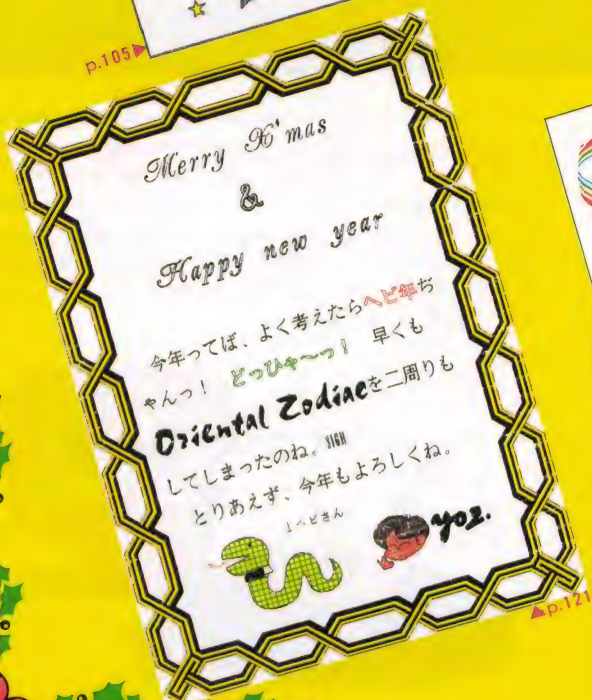 p.105▶
Merry X'mas
&
Happy new year
今年ってば、よく考えたらヘビ年ぢ
ゃんっ！ どっひゃ〜っ！ 早くも
Oriental Zodiacを二周りも
してしまったのね。SIGH
とりあえず、今年もよろしくね。
↓ヘビさん
yoz.
▲p.121